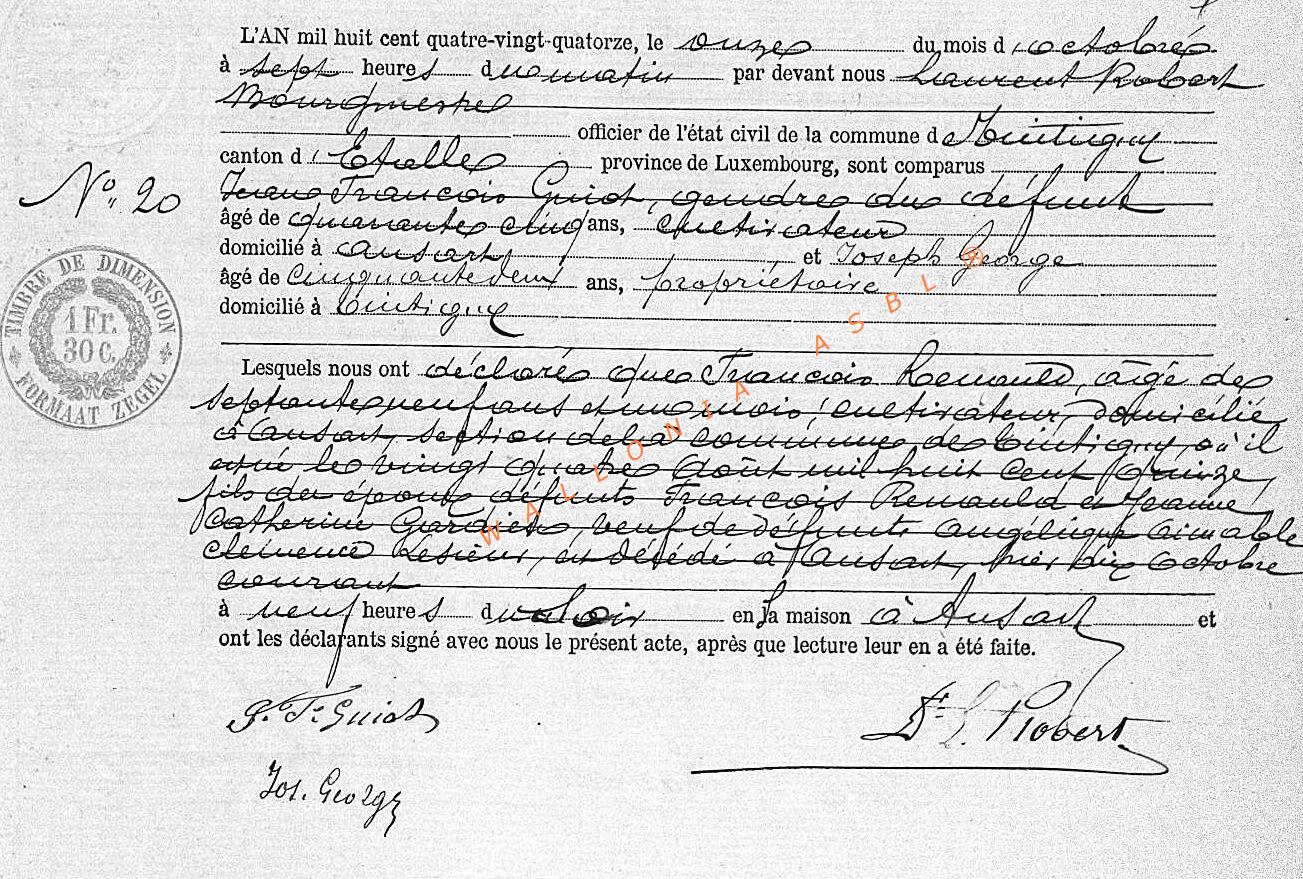 L'AN mil huit cent quatre-vingt-quatorze, le onze du mois d'octobre
à sept heures du matin par devant nous Laurent Robert
Bourgmestre
officier de l'état civil de la commune de Tintigny
canton d'Etalle province de Luxembourg, sont comparus
Jean François Guiot, gendre du défunt
âgé de quarante cinq ans, cultivateur
domicilié à Ansart et Joseph George
âgé de cinquante deux ans, propriétaire
domicilié à Tintigny
Lesquels nous ont déclaré que François Renauld, âgé de
septante neuf ans et un mois, cultivateur, domicilié
à Ansart, section de la commune de Tintigny, où il
est né le vingt quatre août mil huit cent quinze,
fils des époux défunts François Renauld et Jeanne
Catherine Gardien, veuf de défunte Angélique Aimable
Clémence Lésieur, est décédé à Ansart, hier dix octobre
courant
à neuf heures du soir en sa maison à Ansart et
ont les déclarants signé avec nous le présent acte, après que lecture leur en a été faite.
J. F. Guiot
Dr L. Robert
Jos. George
No. 20
TIMBRE DE DIMENSION
1 Fr.
30 C.
FORMAAT ZEGEL
WALLONIA ASBL